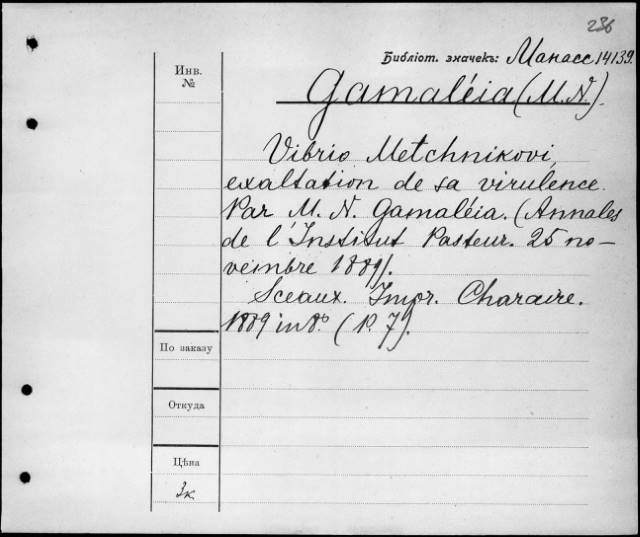 236
Библіот. значекъ: Манасс 14139.
Инв.
№
Gamaléia (M. N.).
Vibrio Metchnikovi,
exaltation de sa virulence.
Par M. N. Gamaléia. (Annales
de l'Institut Pasteur. 25 no-
vembre 1889).
Sceaux. Impr. Charaire.
1889 in 8º. (p. 7).
По заказу
Откуда
Цѣна
3к.